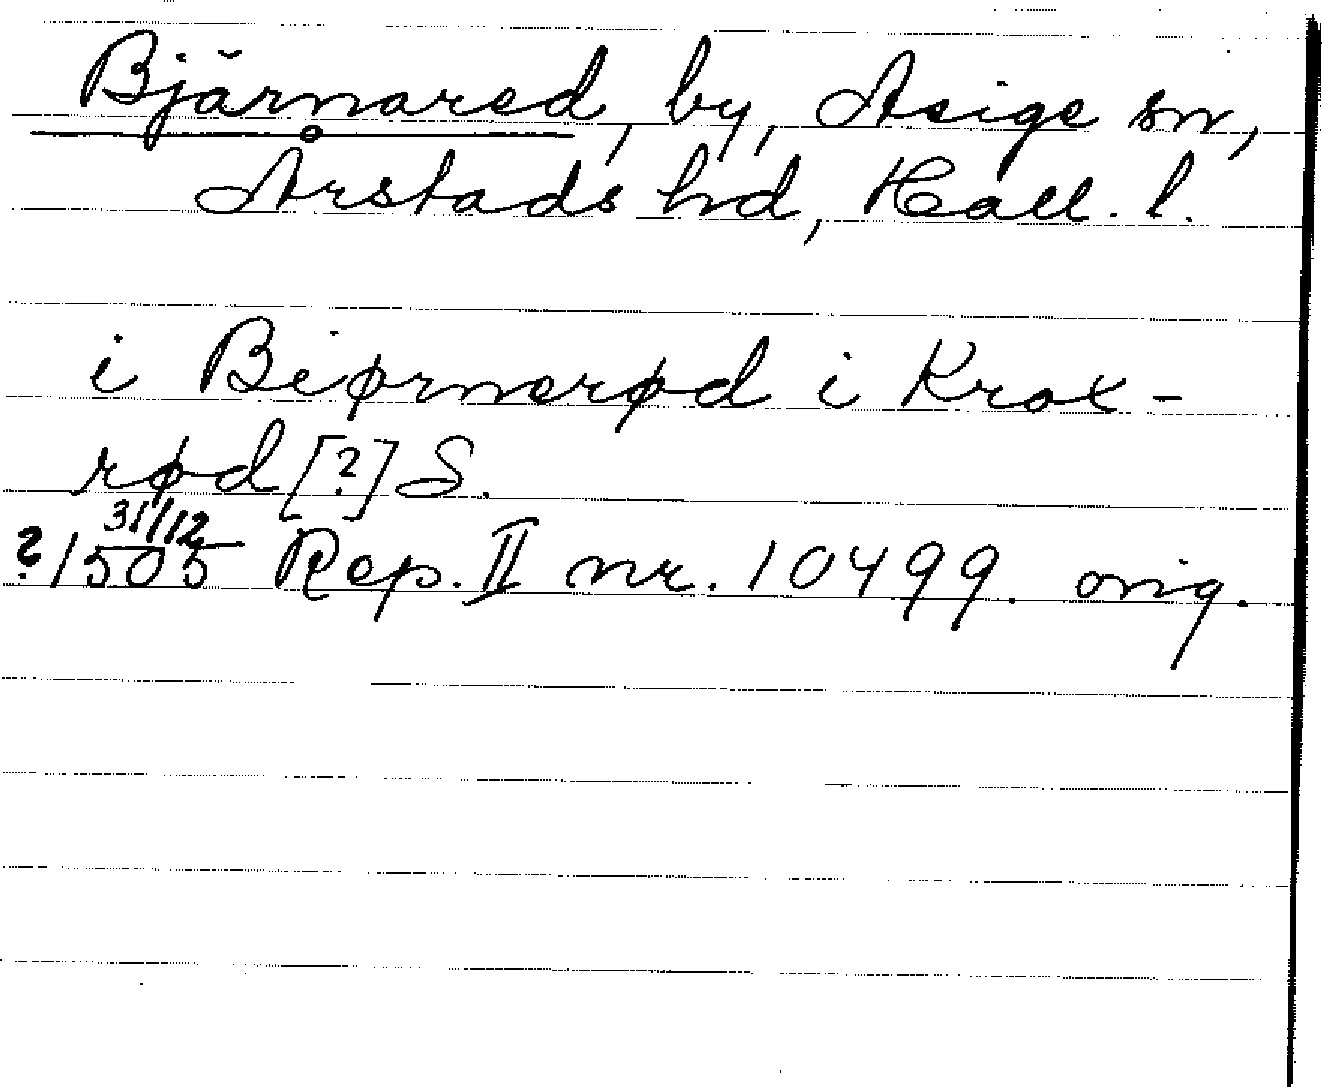 Bjärnared, by, Asige sn,
Årstads hd, Hall. l.
i Biørnerød i Krox-
rød [?] S.
? 31/12 1505 Rep. II nr. 10499. orig.